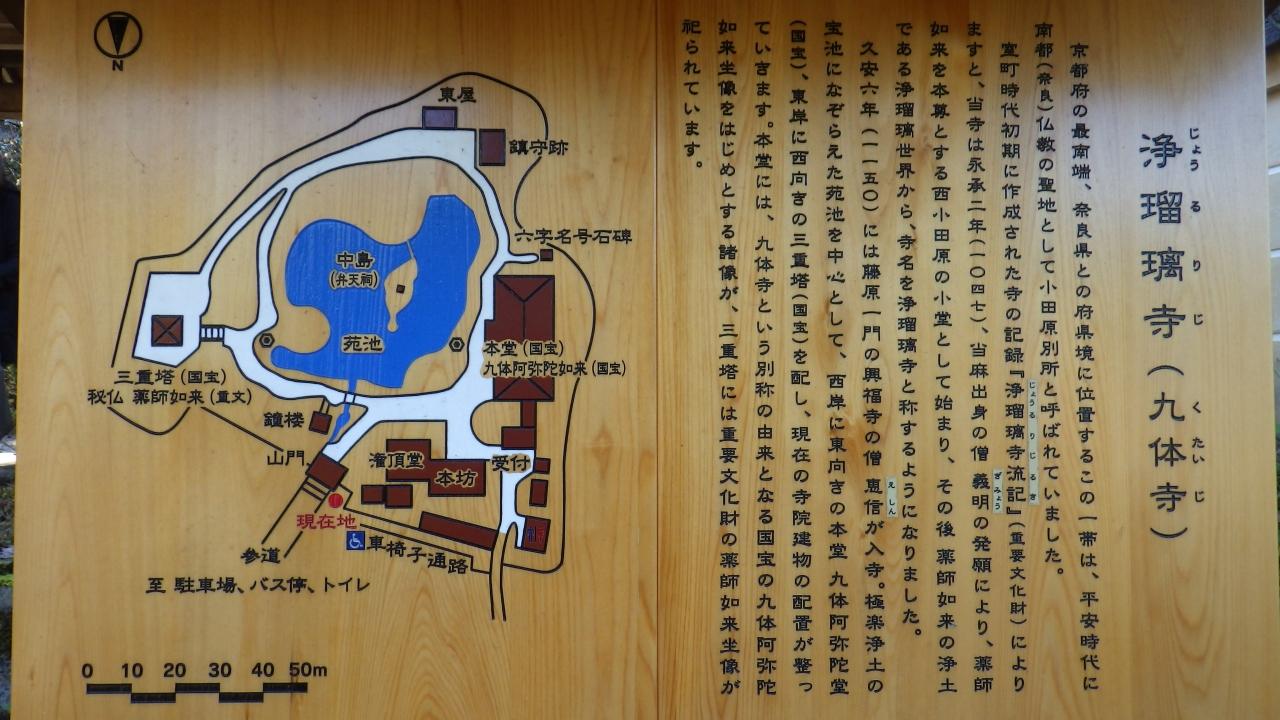 浄瑠璃寺（九体寺）
じょうるりじ
くたいじ
京都府の最南端、奈良県との府県境に位置するこの一帯は、平安時代に
南都（奈良）仏教の聖地として小田原別所と呼ばれていました。
室町時代初期に作成された寺の記録『浄瑠璃寺流記』（重要文化財）により
じょうるりじるき
ますと、当寺は永承二年（一〇四七）、当麻出身の僧 義明の発願により、薬師
ぎみょう
如来を本尊とする西小田原の小堂として始まり、その後 薬師如来の浄土
である浄瑠璃世界から、寺名を浄瑠璃寺と称するようになりました。
久安六年（一一五〇）には藤原一門の興福寺の僧 恵信が入寺。極楽浄土の
えしん
宝池になぞらえた苑池を中心として、西岸に東向きの本堂 九体阿弥陀堂
（国宝）、東岸に西向きの三重塔（国宝）を配し、現在の寺院建物の配置が整っ
ていきます。本堂には、九体寺という別称の由来となる国宝の九体阿弥陀
如来坐像をはじめとする諸像が、三重塔には重要文化財の薬師如来坐像が
祀られています。
N
東屋
鎮守跡
六字名号石碑
中島
（弁天祠）
苑池
本堂（国宝）
九体阿弥陀如来（国宝）
三重塔（国宝）
秘仏 薬師如来（重文）
鐘楼
山門
潅頂堂
本坊
受付
現在地
参道
車椅子通路
至 駐車場、バス停、トイレ
0 10 20 30 40 50m